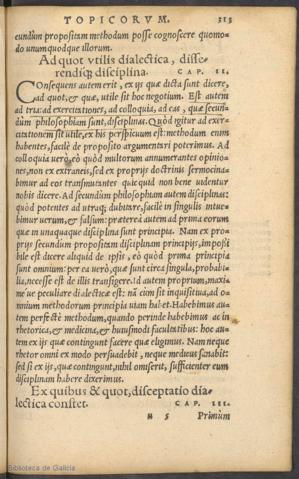 TOPICORVM. 313
cundùm propositam methodum posse cognoscere quomo-
do unumquodque illorum.
Ad quot vtilis dialectica, disse-
rendiq; disciplina. CAP. II.
Consequens autem erit, ex ijs quæ dicta sunt dicere,
ad quot, & quæ, utile sit hoc negotium. Est autem
ad tria: ad exercitationes, ad colloquia, ad eas, quæ secun-
dùm philosophiam sunt, disciplinas. Quòd igitur ad exer-
citationem sit utile, ex his perspicuum est: methodum enim
habentes, facilè de proposito argumentari poterimus. Ad
colloquia uerò, eò quòd multorum annumerantes opinio-
nes, non ex extraneis, sed ex proprijs doctrinis sermocina-
bimur ad eos transmutantes quicquid non bene uidentur
nobis dicere. Ad secundùm philosophiam autem disciplinas:
quòd potentes ad utraq; dubitare, facilè in singulis intue-
bimur uerum, & falsum: præterea autem ad prima eorum
quæ in unaquaque disciplina sunt principia. Nam ex pro-
prijs secundùm propositam disciplinam principijs, impossi
bile est dicere aliquid de ipsis, eò quòd prima principia
sunt omnium: per ea uerò, quæ sunt circa singula, probabi-
lia, necesse est de illis transigere. Id autem proprium, maxi-
me ue peculiare dialecticæ est: nã cùm sit inquisitiua, ad o-
mnium methodorum principia uiam habet. Habebimus au-
tem perfectè methodum, quando perinde habebimus ac in
rhetorica, & medicina, & huiusmodi facultatibus: hoc au-
tem ex ijs quæ contingunt facere quæ eligimus. Nam neque
rhetor omni ex modo persuadebit, neque medicus sanabit:
sed si ex ijs, quæ contingunt, nihil omiserit, sufficienter eum
disciplinam habere dixerimus.
Ex quibus & quot, disceptatio dia-
lectica constet. CAP. III.
H 5 Primùm
Biblioteca de Galicia